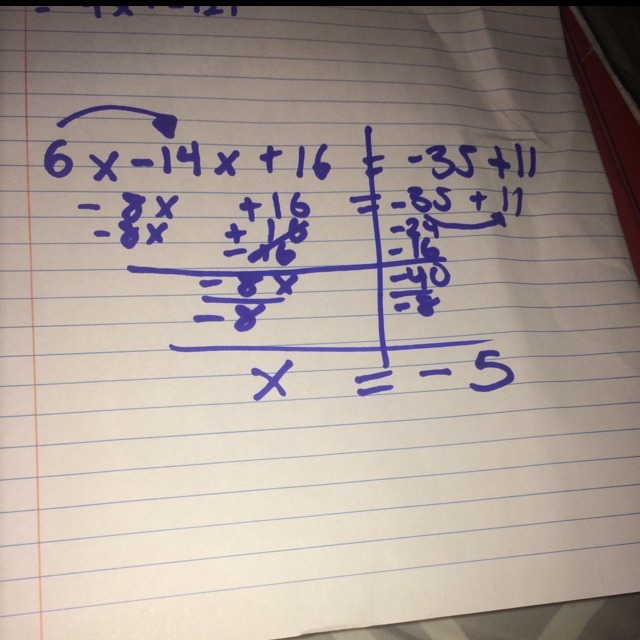 6x - 14x + 16 = -35 + 11
- 8x + 16 = -35 + 11
- 8x + 16 -24
- 16 - 16
- 8x -40
- 8 - 8
x = - 5